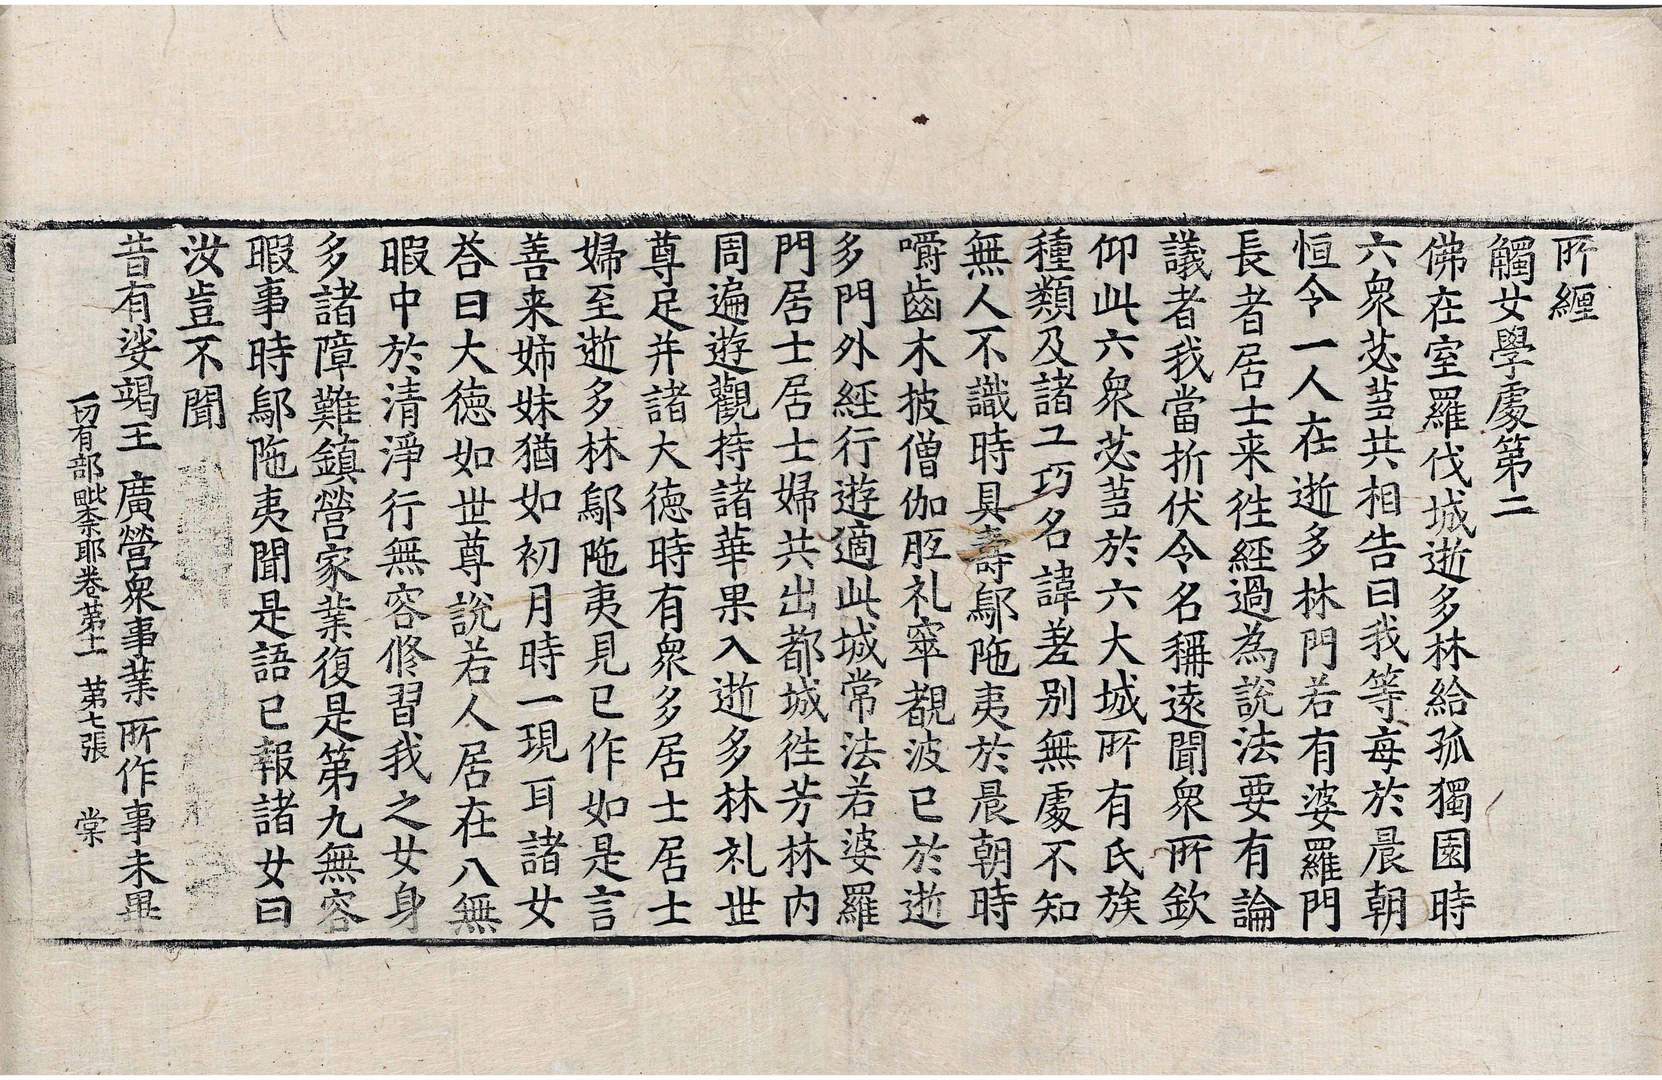 所纏
觸女學處第二
佛在室羅伐城逝多林給孤獨園時
六衆苾蒭共相告曰我等每於晨朝
恒令一人在逝多林門若有婆羅門
長者居士来往經過為說法要有論
議者我當折伏令名稱遠聞衆所欽
仰此六衆苾蒭於六大城所有氏族
種類及諸工巧名諱差别無處不知
無人不識時具壽鄔陁夷於晨朝時
嚼齒木披僧伽胝礼窣覩波已於逝
多門外經行遊適此城常法若婆羅
門居士居士婦共出都城往芳林内
周遍遊觀持諸華果入逝多林礼世
尊足并諸大德時有衆多居士居士
婦至逝多林鄔陁夷見已作如是言
善来姉妹猶如初月時一現耳諸女
荅曰大德如世尊說若人居在八無
暇中於清淨行無容修習我之女身
多諸障難鎮營家業復是第九無容
暇事時鄔陁夷聞是語已報諸女曰
汝豈不聞
昔有娑竭王 廣營衆事業 所作事未畢
一切有部毗奈耶卷第十一 第七張 棠